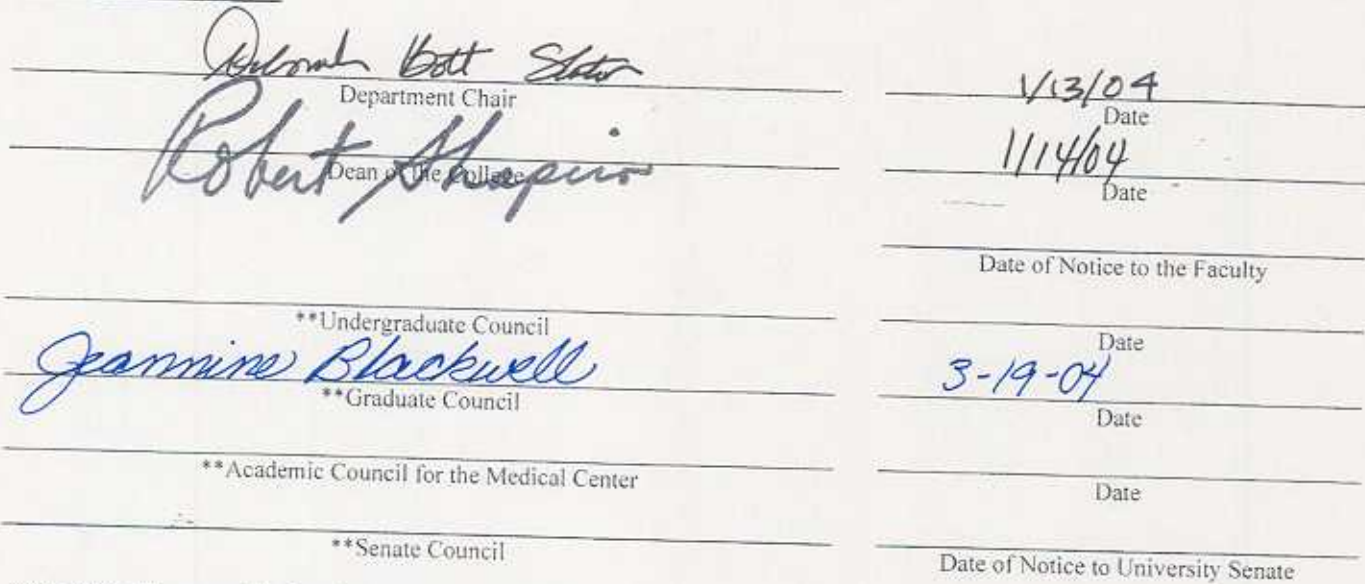 Deborah Bott Slater 1/13/04
Department Chair Date
Robert Shapiro 1/14/04
Dean of the College Date
Date of Notice to the Faculty
**Undergraduate Council Date
Jeannine Blackwell 3-19-04
**Graduate Council Date
**Academic Council for the Medical Center Date
**Senate Council Date of Notice to University Senate